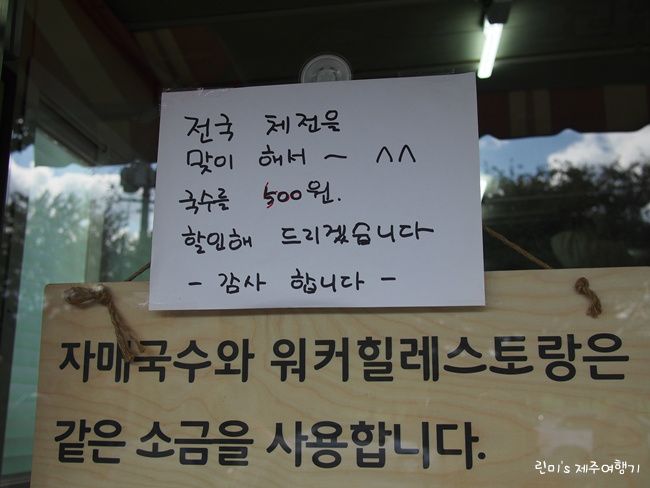 전국 체전을
맞이 해서 ~ ^^
국수를 500원.
할인해 드리겠습니다
- 감사 합니다 -
자매국수와 워커힐레스토랑은
같은 소금을 사용합니다.
린미's 제주여행기